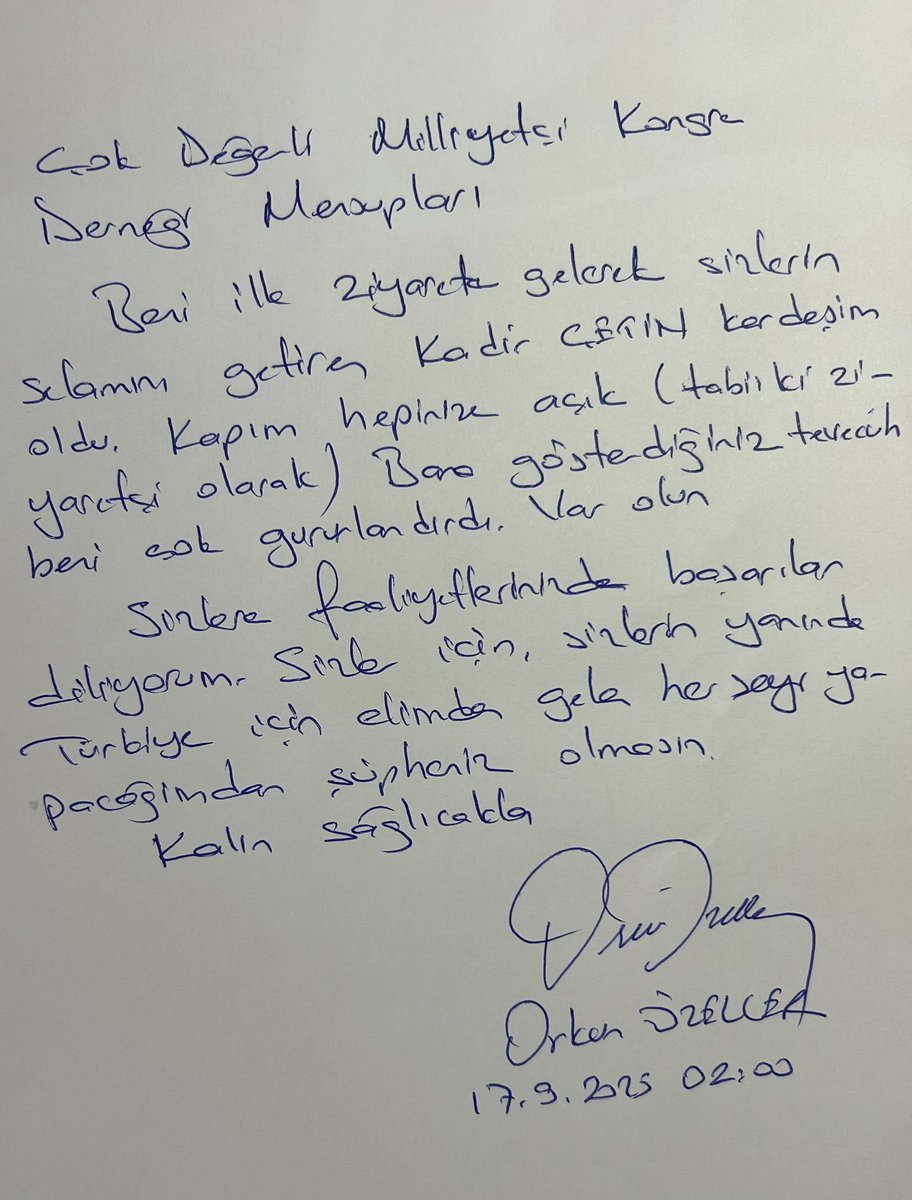 Çok Değerli Milliyetçi Kongre
Derneği Mensupları
Beni ilk ziyarete gelerek sizlerin
selamını getiren Kadir ÇETİN kardeşim
oldu. Kapım hepinize açık (tabii ki zi-
yaretçi olarak) Bana gösterdiğiniz teveccüh
beni çok gururlandırdı. Var olun
Sizlere faaliyetlerinizde başarılar
diliyorum. Sizler için, sizlerin yanında
Türkiye için elimden gelen her şeyi ya-
pacağımdan şüpheniz olmasın.
Kalın sağlıcakla
Orkun ÖZELLER
17.9.2025 02:00